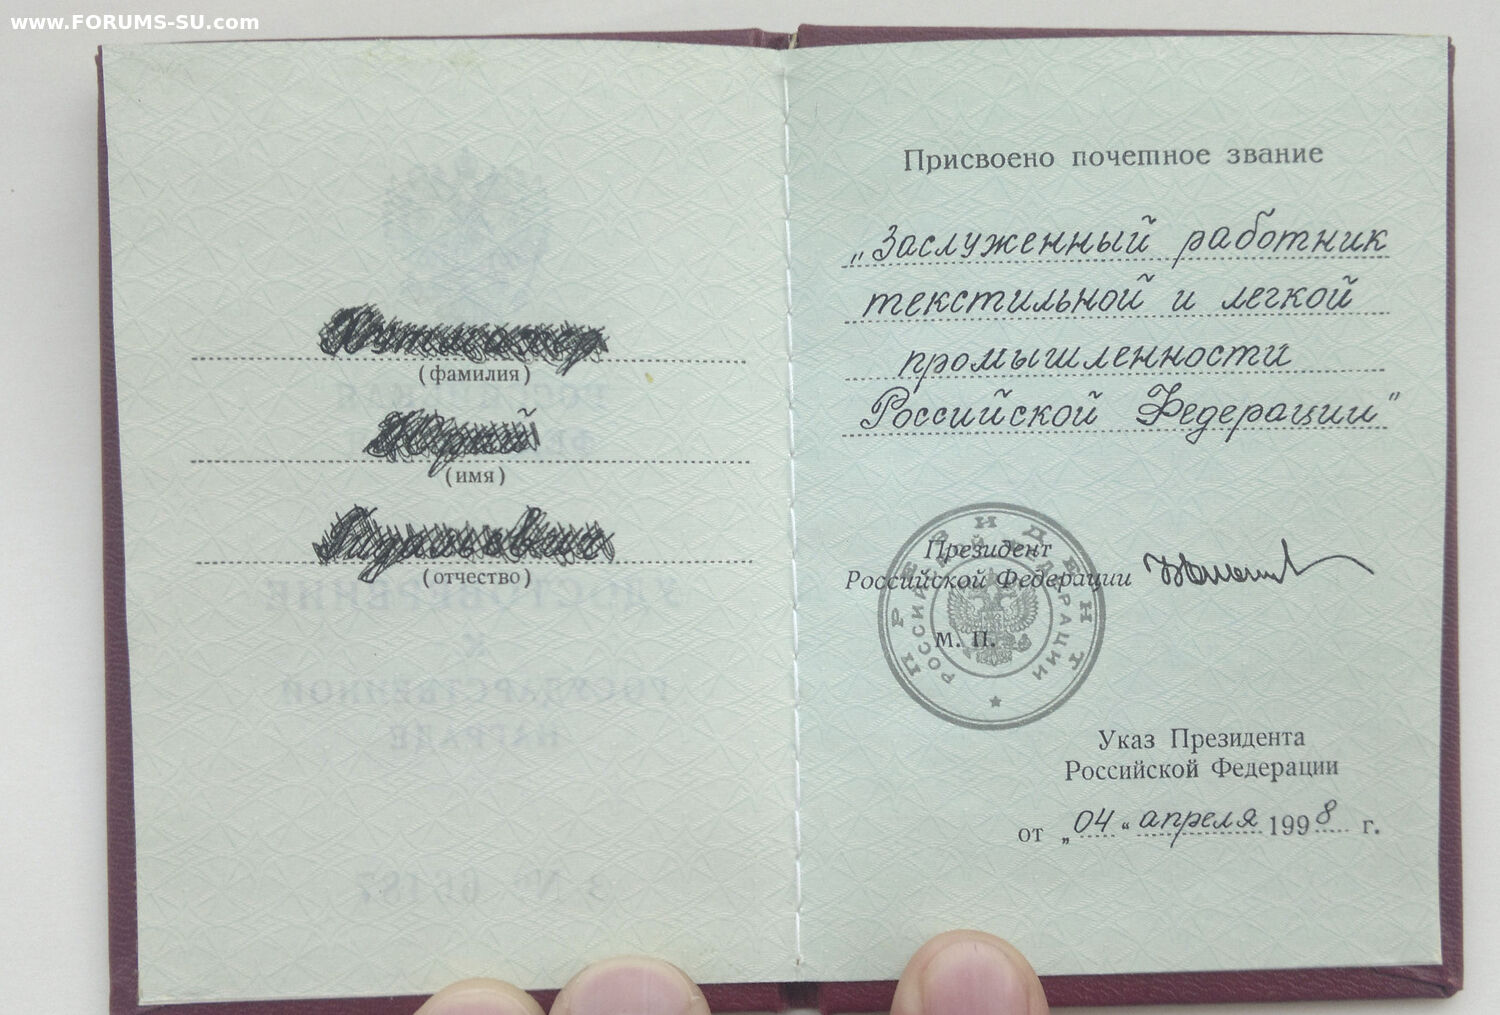 www.FORUMS-SU.com
(фамилия)
(имя)
(отчество)
Присвоено почетное звание
„Заслуженный работник
текстильной и легкой
промышленности
Российской Федерации"
Президент
Российской Федерации
М. П.
ПРЕЗИДЕНТ
РОССИЙСКОЙ ФЕДЕРАЦИИ
Указ Президента
Российской Федерации
от „04“ апреля 1998 г.